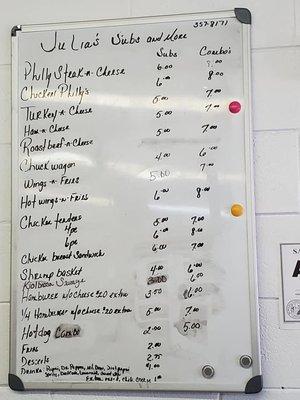 357-8171
Julia's Subs and More
Subs Combo's
Philly Steak-n-Cheese 6.00
Chicken Philly's 6.00 8.00
Turkey-n-Cheese 5.00 7.00
Ham-n-Cheese 5.00 7.00
Roast beef-n-Cheese 5.00 7.00
Chuckwagon 4.00 6.00
Wings-n-Fries 5.00 7.00
Hot wings-n-Fries 6.00 8.00
Chicken tenders 5.00 7.00
4pc 6.00 8.00
6pc 5.00 7.00
Chicken breast Sandwich
Shrimp basket 4.00 6.00
Kielbasa Sausage 6.00
Hamburger w/cheese .20 extra 3.50 6.00
1/4 Hamburger w/cheese .20 extra 5.00 7.00
Hotdog Combo 2.00 5.00
Fries 2.00
Desserts 2.75
Drinks: Pepsi, Dr. Pepper, Mt. Dew, $1.00
Extra 1.00